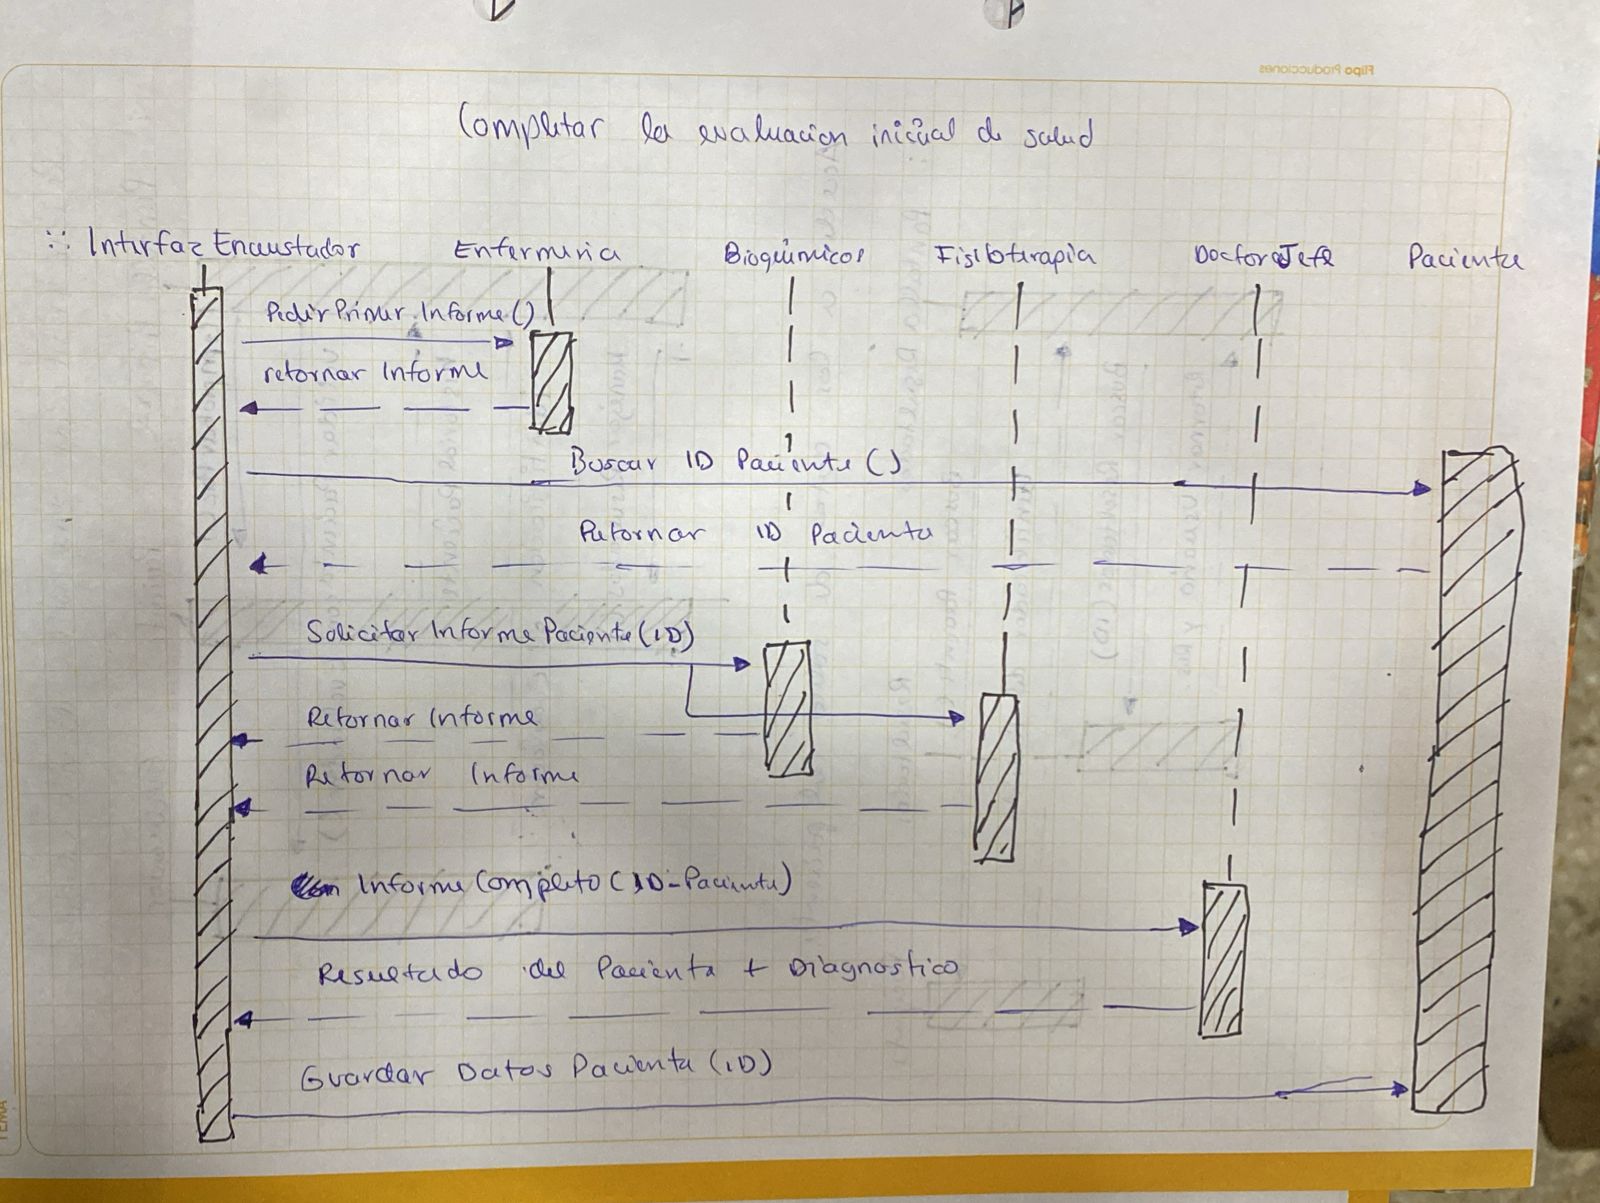 Flipo Producciones
Completar la evaluacion inicial de salud
:: Interfaz Encuestador Enfermeria Bioquimicos Fisiloterapia Doctora Jefe Paciente
Pedir Primer Informe()
retornar Informe
Buscar ID Paciente()
Retornar ID Paciente
Solicitar Informe Paciente(ID)
Retornar Informe
Retornar Informe
Informe Completo(ID-Paciente)
Resultado del Paciente + Diagnostico
Guardar Datos Paciente (ID)
TEMA